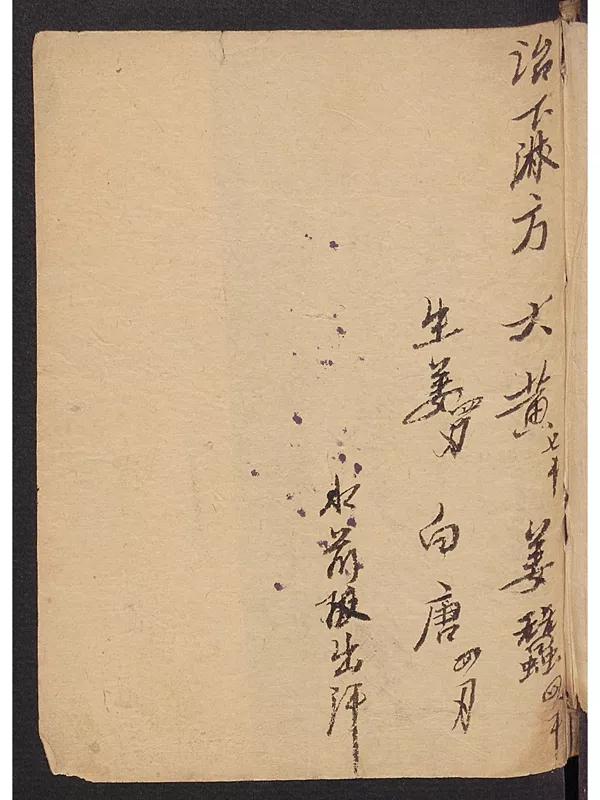 治下淋方 大黄七千 姜蚕四千
生姜四刃 白唐四刃
水煎服出汗